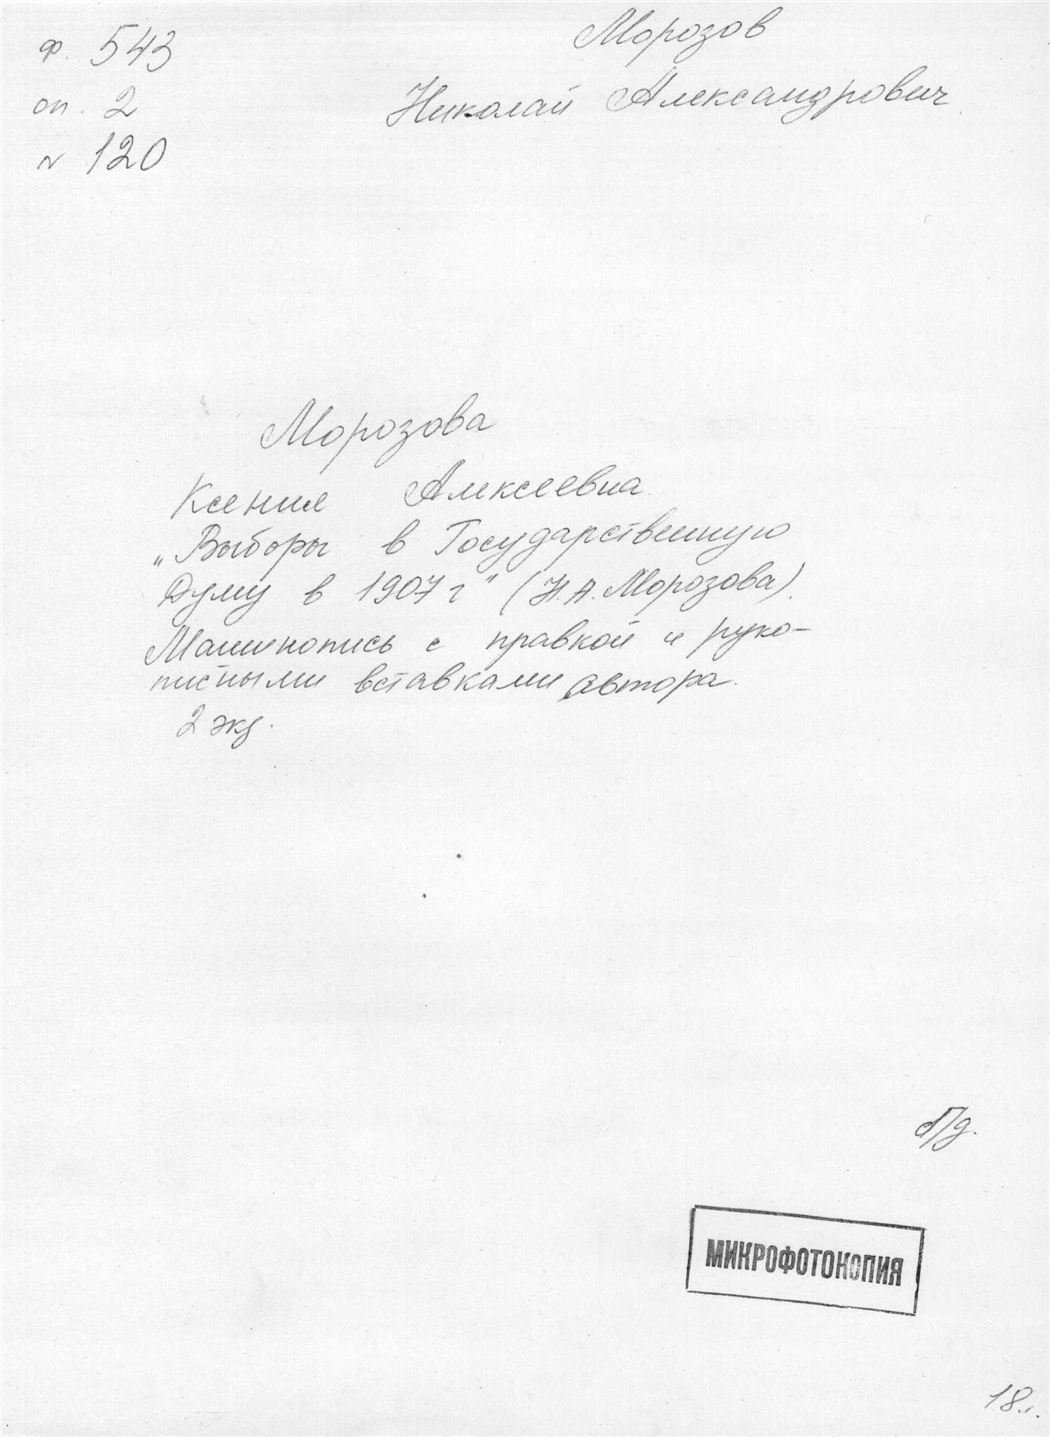 ф. 543
оп. 2
№ 120
Морозов
Николай Александрович
Морозова
Ксения Алексеевна
„Выборы в Государственную
Думу в 1907 г" (Н.А. Морозова).
Машинопись с правкой и руко-
писными вставками автора.
2 экз.
б/д.
МИКРОФОТОКОПИЯ
18 л.